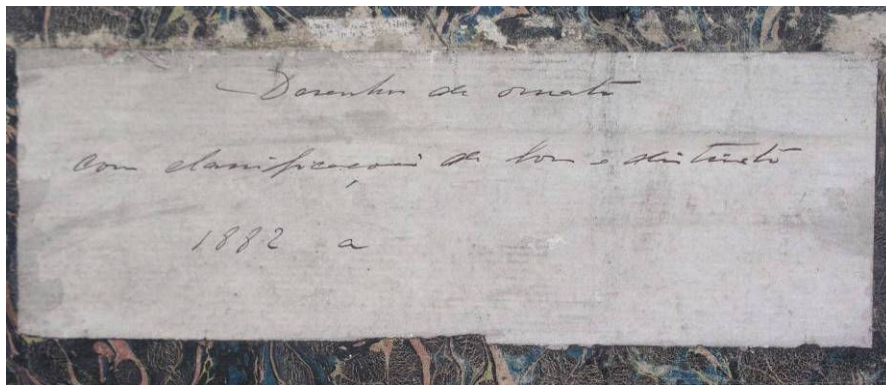 Desenhos de ornato
com classificações de bom e distincto
1882 a